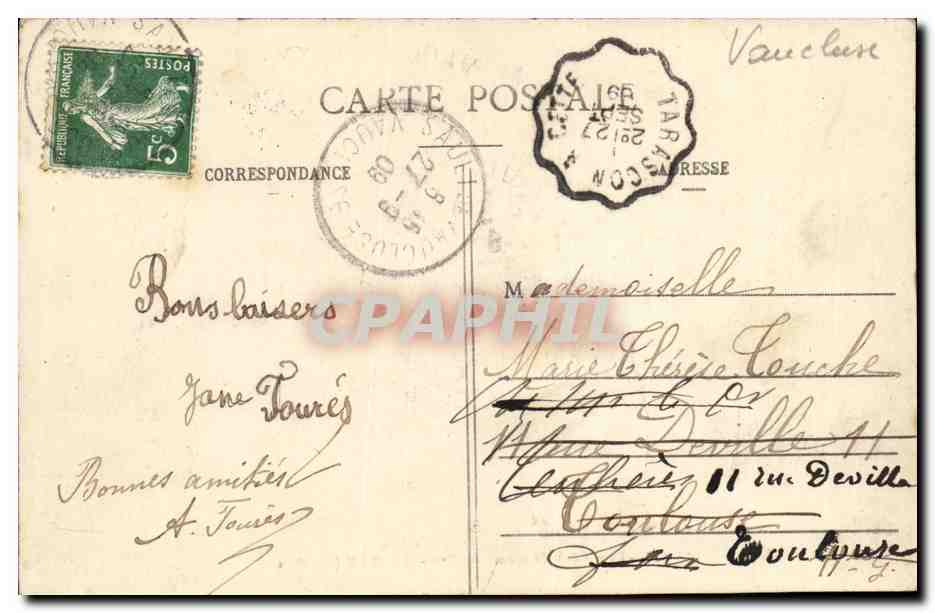 Vaucluse
RÉPUBLIQUE FRANÇAISE
POSTES
5c
CARTE POSTALE
TARASCON A CETTE
27
SEPT
09
SAULT VAUCLUSE
8 45
27 - 9
09
CORRESPONDANCE
ADRESSE
Bons baisers
Jane Tourés
Bonnes amitiés
A. Tourès
Mademoiselle
Marie Thérèse Touche
rue Deville 11
11 rue Deville
Toulouse
Toulouse
Hte-G.
CPAPHIL